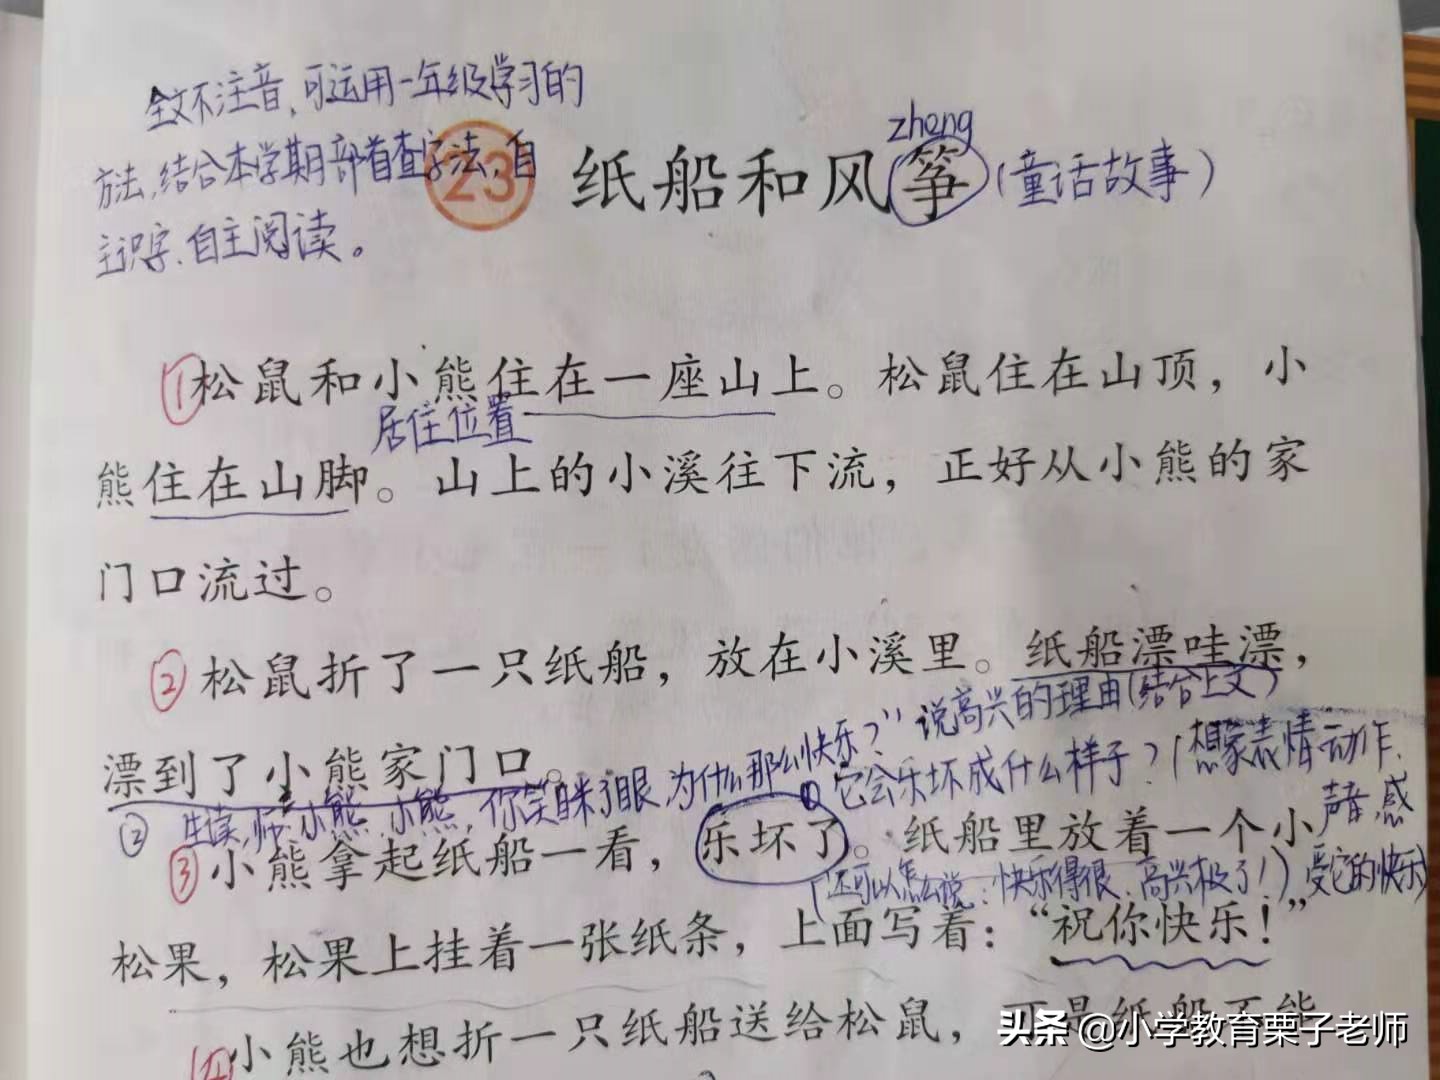 全文不注音,可运用一年级学习的
方法,结合本学期部首查字法,自
主识字、自主阅读。
zheng
23 纸船和风筝(童话故事)
①松鼠和小熊住在一座山上。松鼠住在山顶，小
居住位置
熊住在山脚。山上的小溪往下流，正好从小熊的家
门口流过。
②松鼠折了一只纸船，放在小溪里。纸船漂哇漂，
说高兴的理由(结合上文)
漂到了小熊家门口。
②生读,师:小熊,小熊,你笑眯了眼为什么那么快乐?"
①它会乐坏成什么样子?(想象表情、动作、
声音,感
③小熊拿起纸船一看，乐坏了。纸船里放着一个小
受它的快乐)
(还可以怎么说:快乐得很、高兴极了!)
松果，松果上挂着一张纸条，上面写着：“祝你快乐！”
④小熊也想折一只纸船送给松鼠，可是纸船不能
头条@小学教育栗子老师